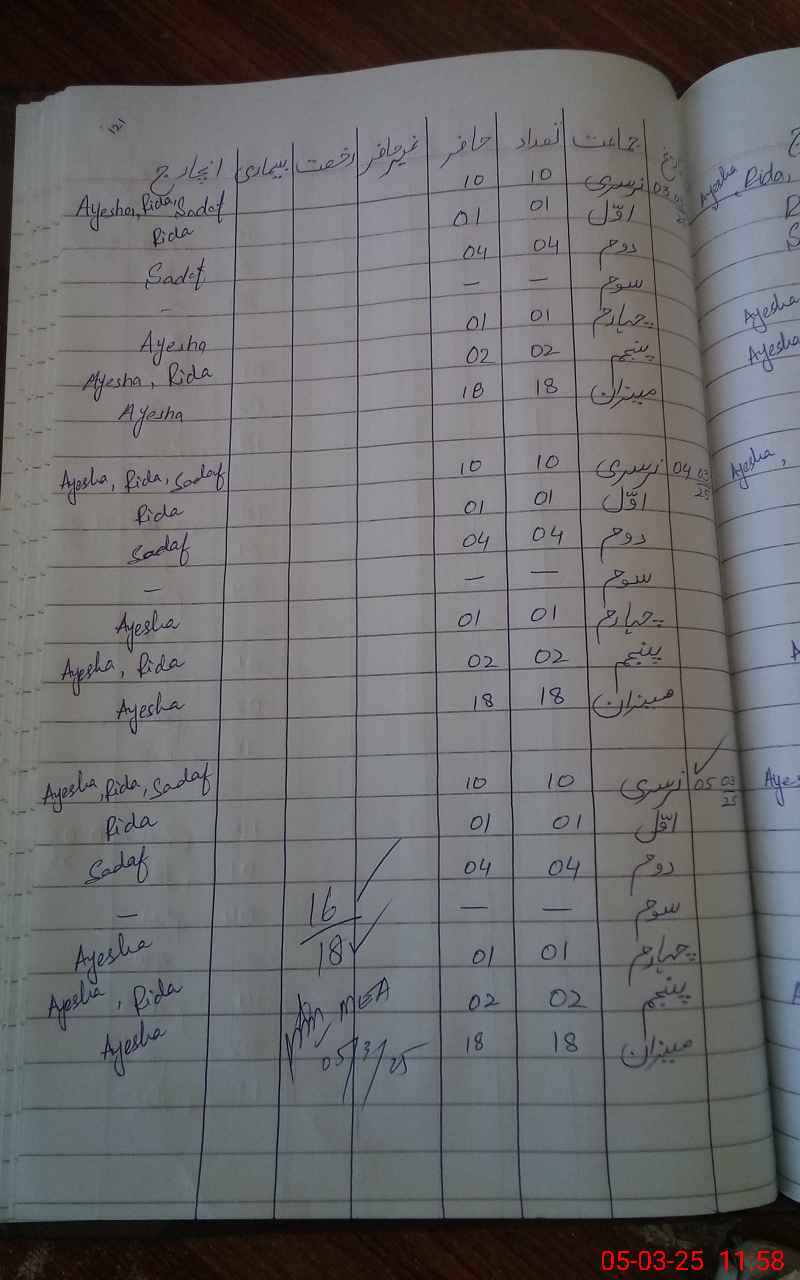 121
تاریخ جماعت تعداد حاضر غیر حاضر رخصت بیماری انچارج
03 03/25 نرسری 10 10 Ayesha, Rida, Sadaf
اوّل 01 01 Rida
دوم 04 04 Sadaf
سوم — — —
چہارم 01 01 Ayesha
پنجم 02 02 Ayesha, Rida
میزان 18 18 Ayesha
04 03/25 نرسری 10 10 Ayesha, Rida, Sadaf
اوّل 01 01 Rida
دوم 04 04 Sadaf
سوم — — —
چہارم 01 01 Ayesha
پنجم 02 02 Ayesha, Rida
میزان 18 18 Ayesha
05 03/25 نرسری 10 10 Ayesha, Rida, Sadaf
اوّل 01 01 Rida
دوم 04 04 Sadaf
سوم — — —
چہارم 01 01 Ayesha
پنجم 02 02 Ayesha, Rida
میزان 18 18 Ayesha
16/18
MEA
05/3/25
Ayesha, Rida,
Ayesha
Ayesha
Ayesha,
05-03-25 11:58